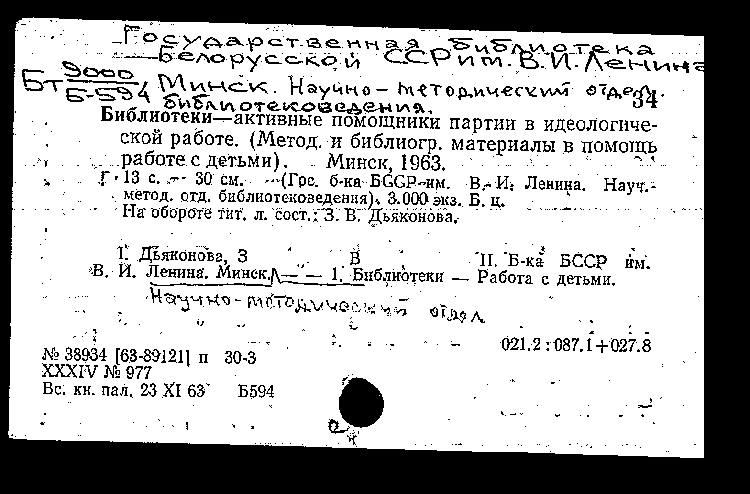 Государственная библиотека
Белорусской ССР им. В. И. Ленина
Бт 9000/Б-594, Минск. Научно-методический отдел
библиотековедения. 34
Библиотеки—активные помощники партии в идеологиче-
ской работе. (Метод. и библиогр. материалы в помощь
работе с детьми). Минск, 1963.
13 с. 30 см. (Гос. б-ка БССР им. В. И. Ленина. Науч.-
метод. отд. библиотековедения). 3.000 экз. Б. ц.
На обороте тит. л. сост.: З. В. Дьяконова.
I. Дьяконова, З В II. Б-ка БССР им.
В. И. Ленина. Минск. — 1. Библиотеки — Работа с детьми.
Научно-методический отдел
021.2 : 087.1+027.8
№ 38934 [63-89121] п 30-3
XXXIV № 977
Вс. кн. пал. 23 XI 63 Б594